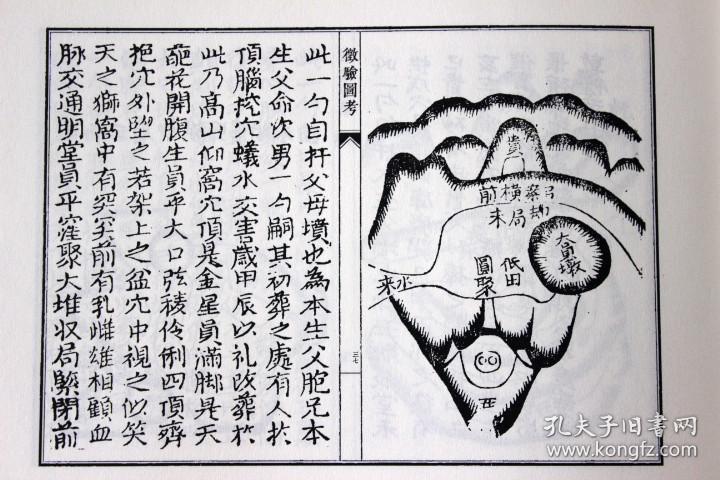 貴
弓案橫前
大員墩
低田
圓聚
水来
徵驗圖考
三七
此一勾自扦父母墳也為本生父胞兄本
生父命次男一勾嗣其初葬之處有人扵
頂腦挖穴蟻水交害歲甲辰以礼改葬扵
此乃高山仰窩穴頂是金星員滿脚是天
葩花開腹生員平大口弦稜伶俐四頂齊
抱穴外墜之若架上之盆穴中視之似笑
天之獅窩中有突突前有乳雌雄相顧血
脉交通明堂員平窪聚大堆收局緊閉前
孔夫子旧书网
www.kongfz.com